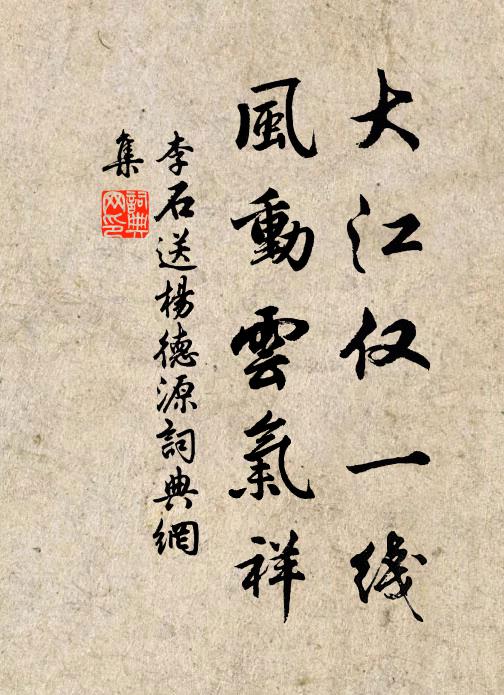 大江仅一线
風動雲氣祥
李石送楊德源詞典網
集
詞典
网印